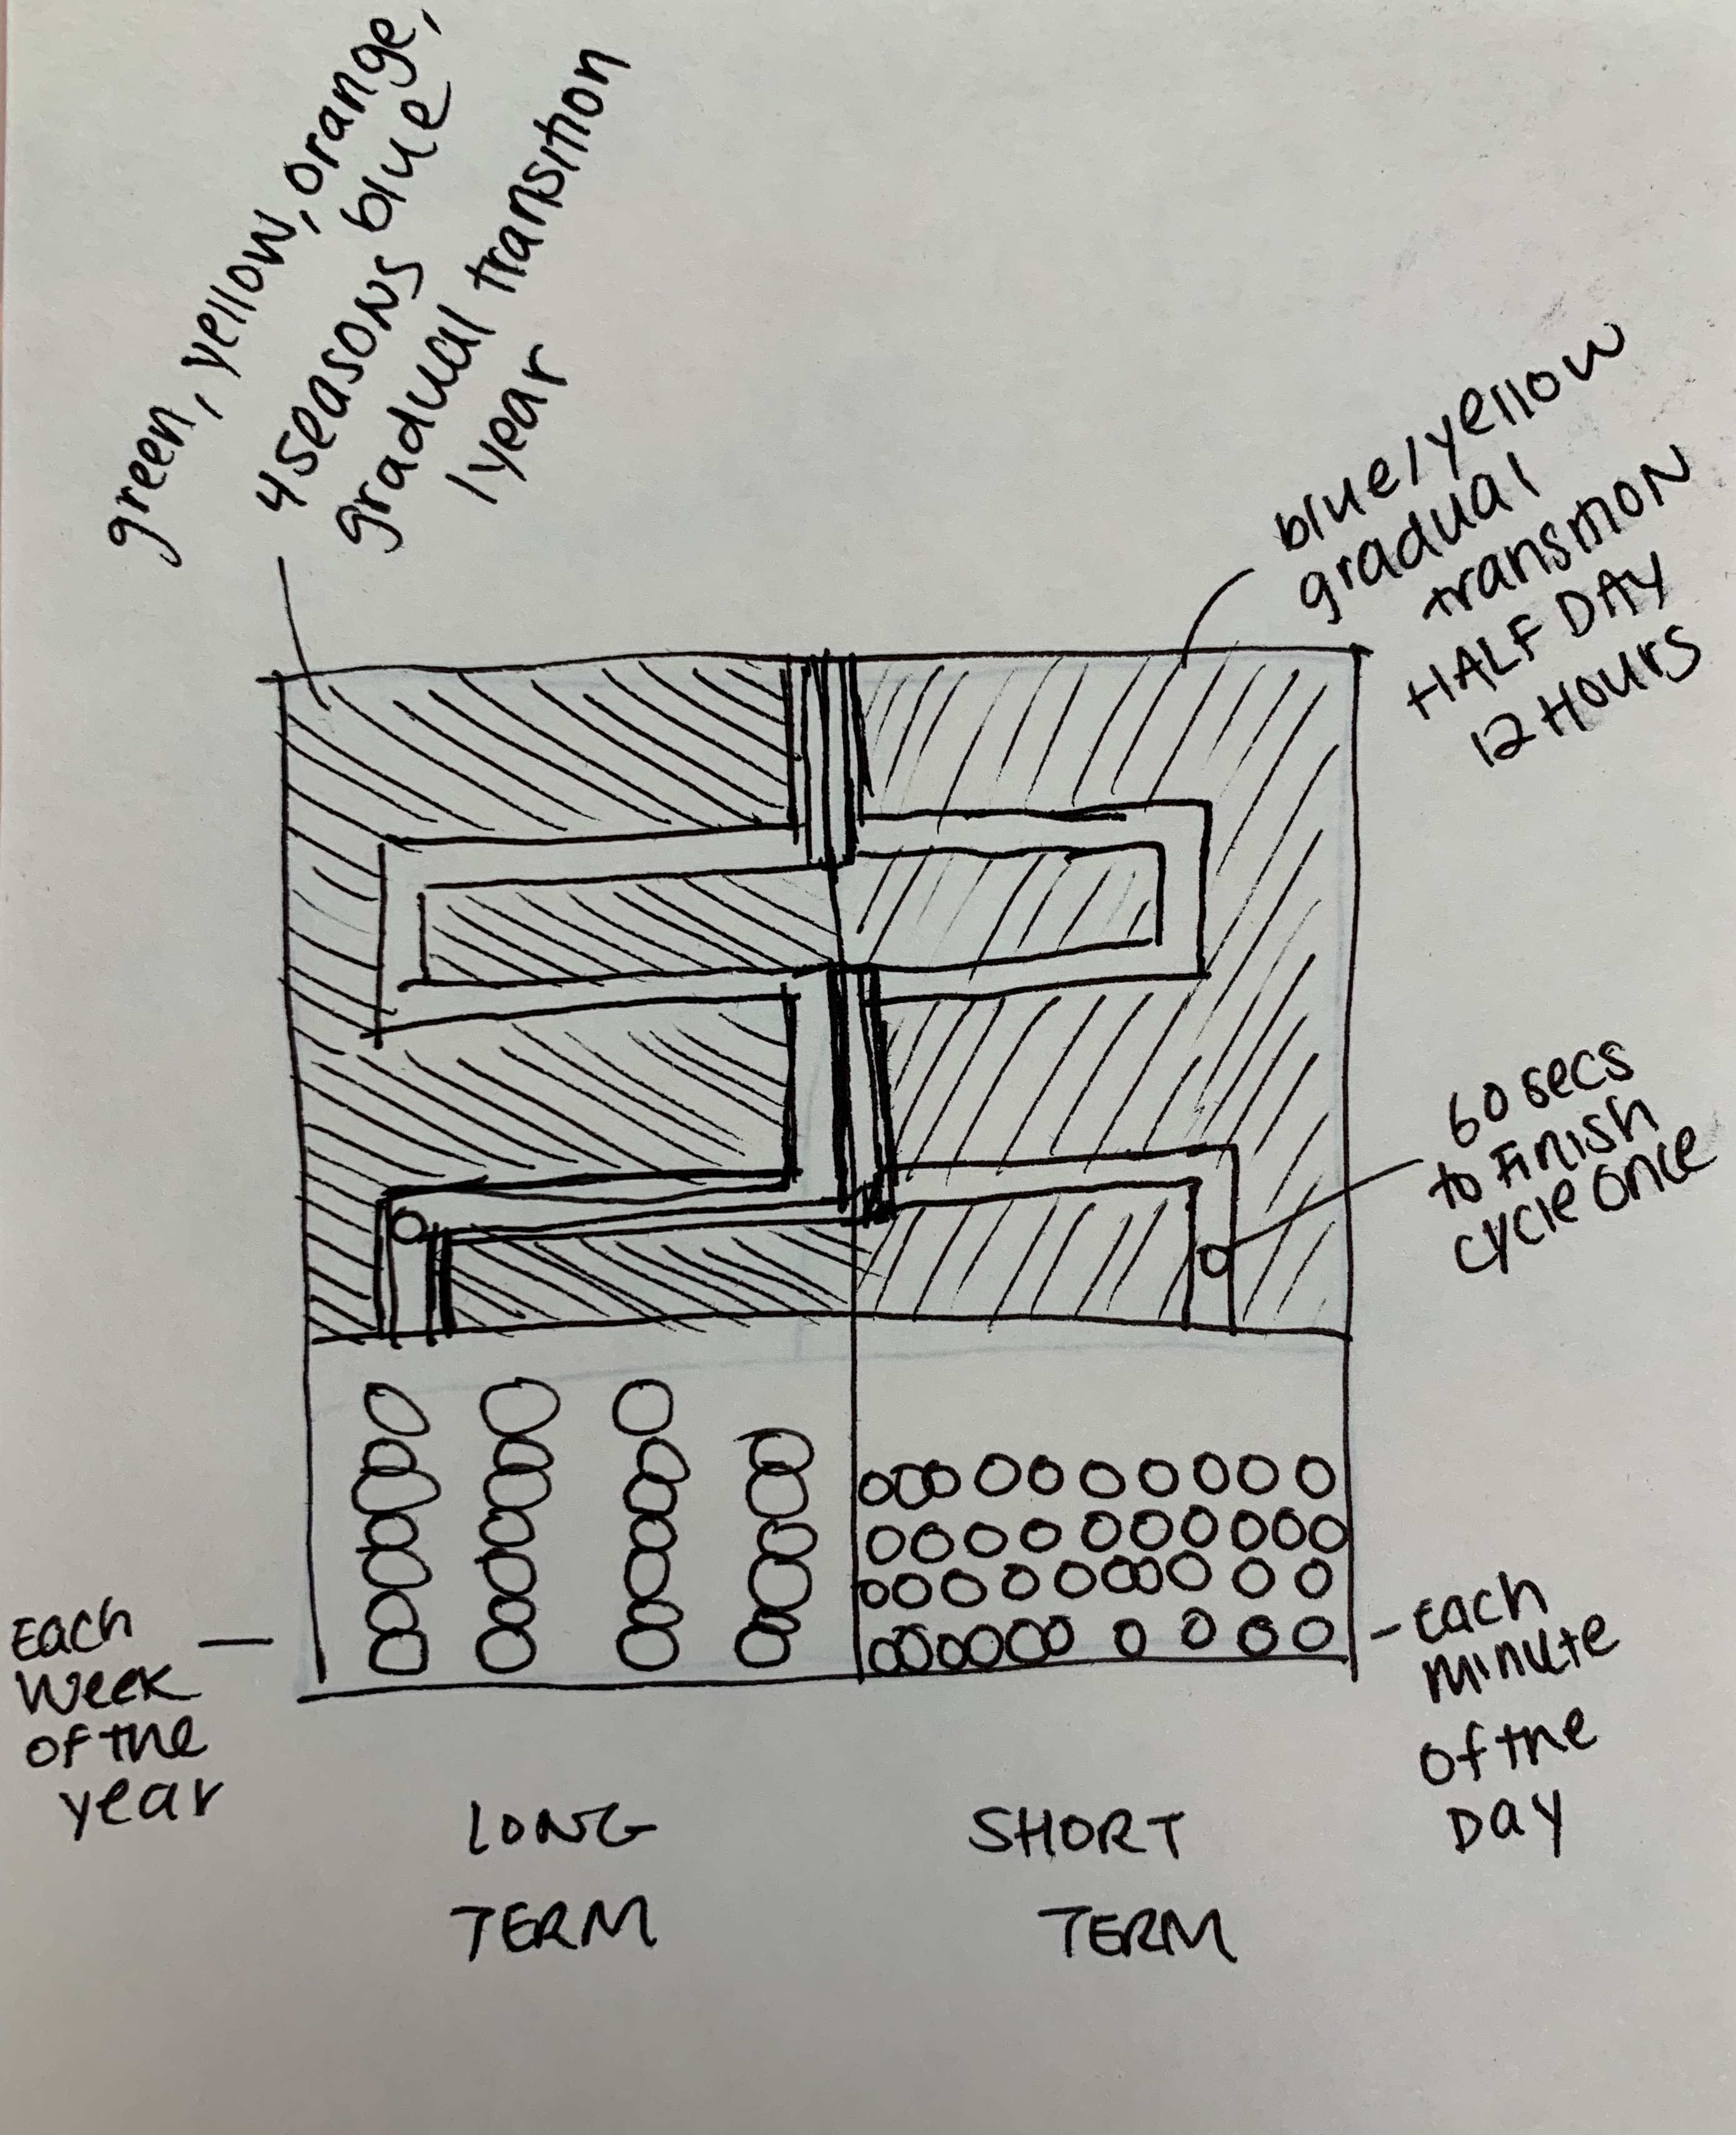 green, yellow, orange,
blue
4 seasons
gradual transition
1 year
blue/yellow
gradual
transition
HALF DAY
12 HOURS
60 secs
to Finish
cycle once
Each
week
of the
year
Each
minute
of the
Day
LONG
TERM
SHORT
TERM